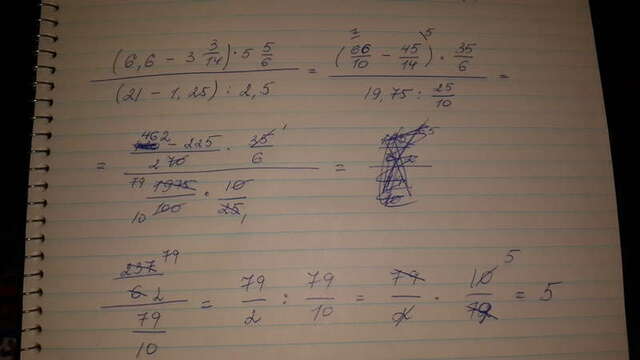 (6,6 - 3 3/14) · 5 5/6 / (21 - 1,25) : 2,5 = (66/10 - 45/14) · 35/6 / 19,75 : 25/10 =
= 462 - 225 / 2 10 · 35/6 / 79 1975 / 10 100 · 10/25 =
237 79 / 6 2 / 79/10 = 79/2 : 79/10 = 79/2 · 10/79 = 5